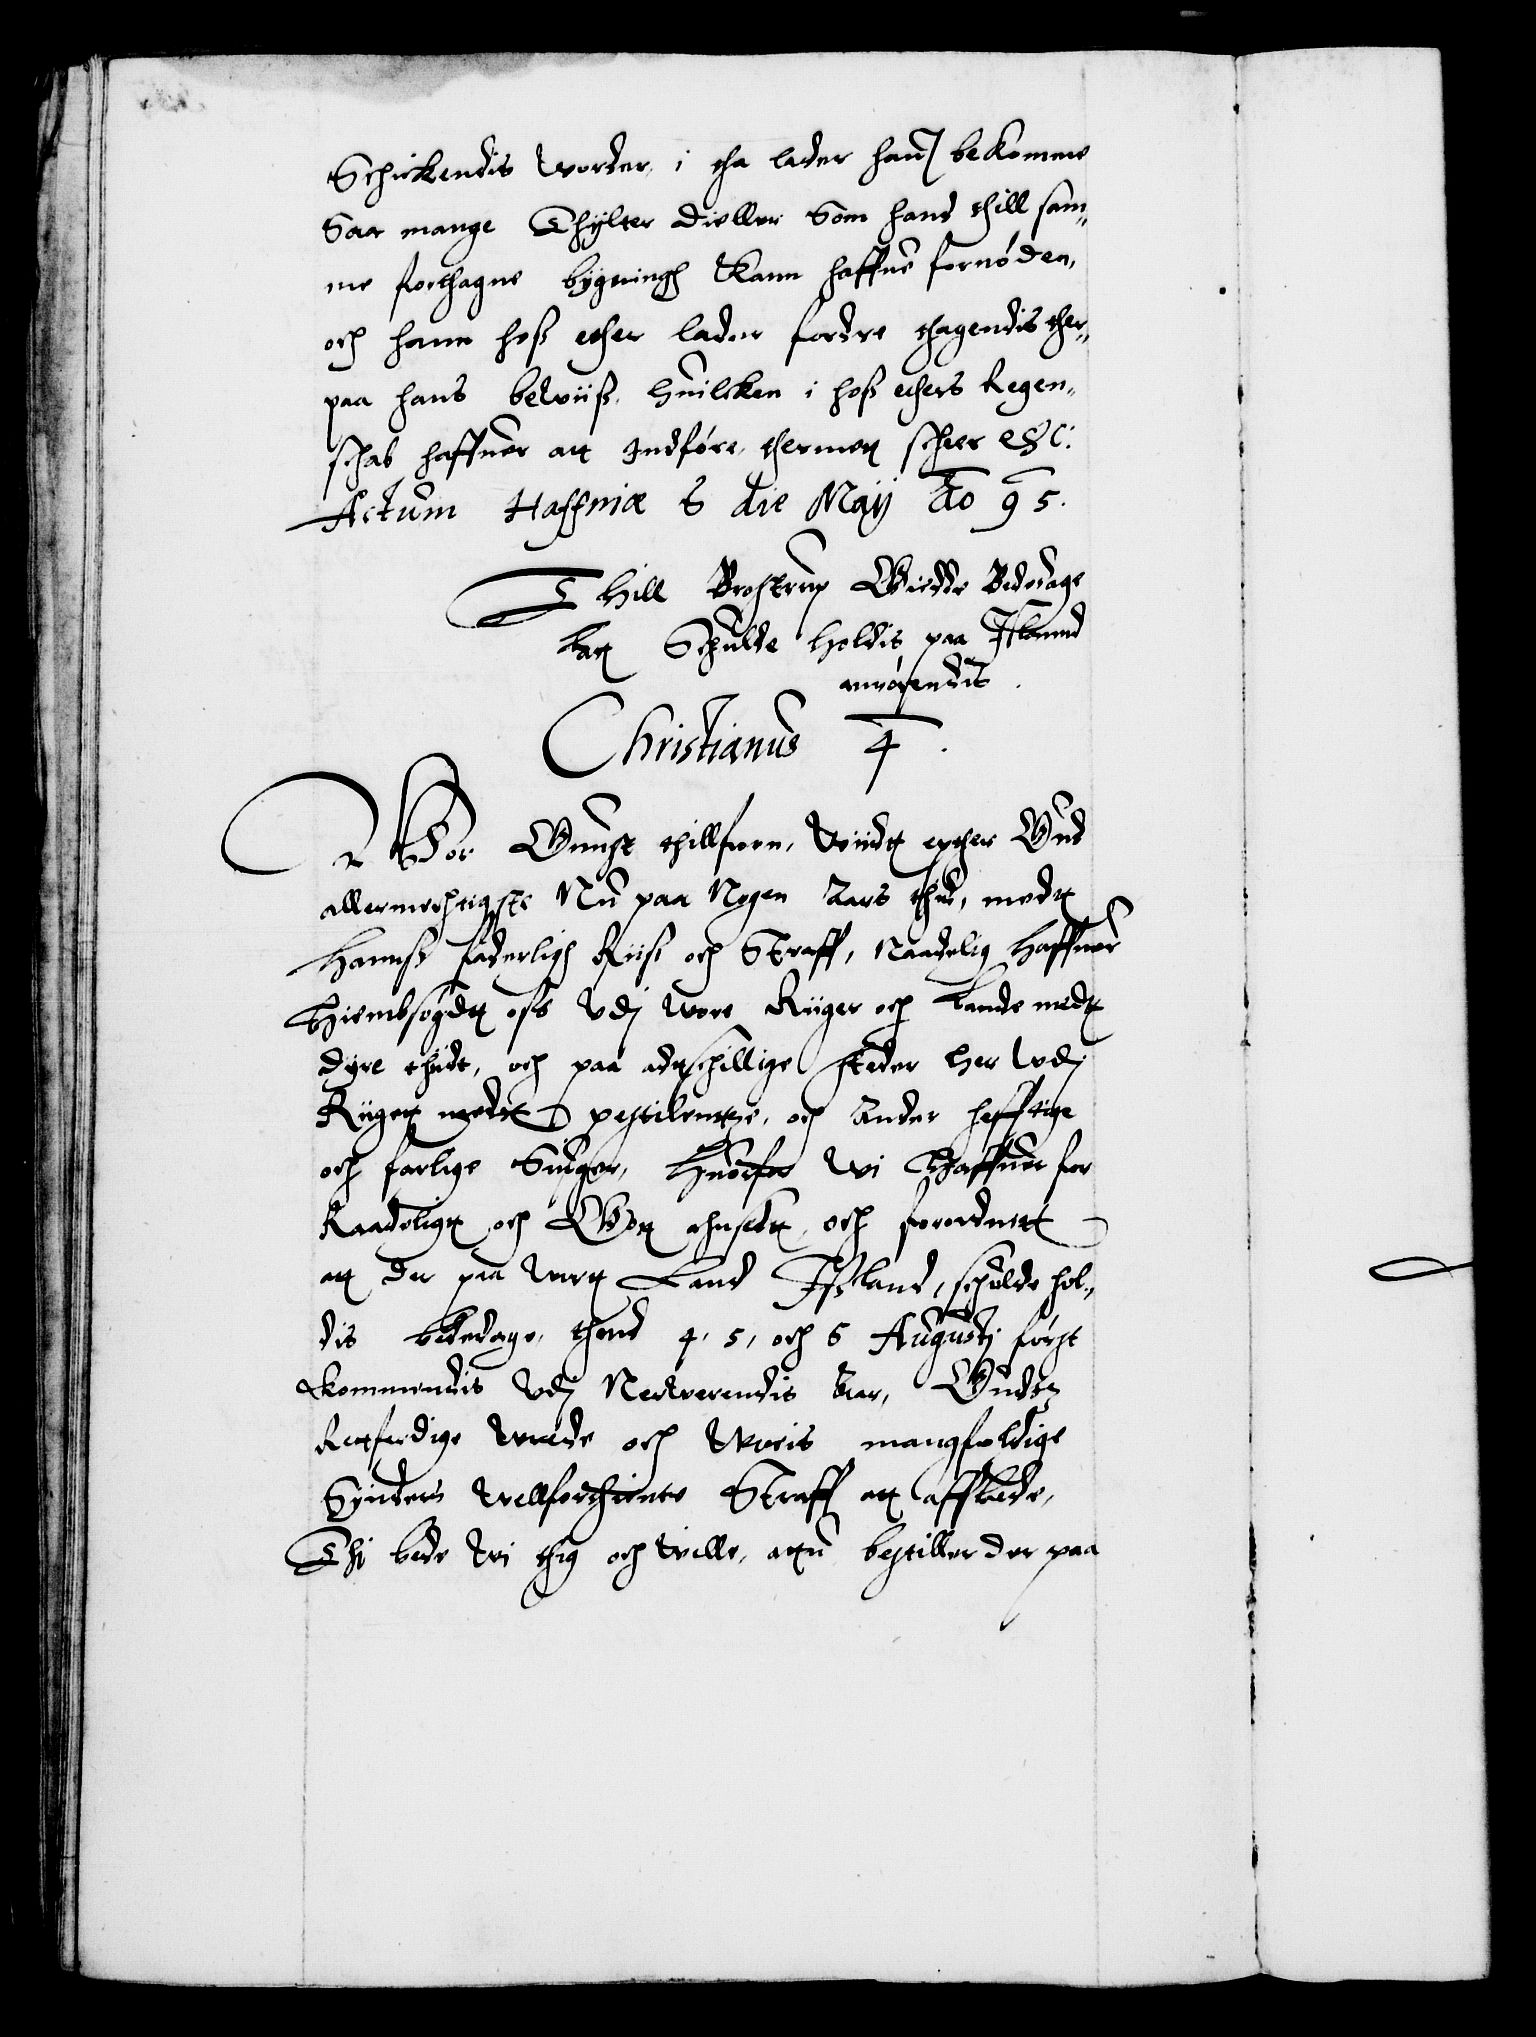 Schickendis vorder, i tha lader hanj bekomme
Saa mange Thylter dieller Som hand thill sam„
me forthagne bygningh kann haffue fornøden,
och hann hoß ether lader fordre thagendis ther„
paa hans beviiß. huilcken i hoß ethers Regen„
schab haffuer att Indføre, thermett scheer etc:
Actum Haffniæ 6 die Maÿ Ao 95.
Thill Brostrup Giedde Bededage
latt Schulde holdis paa Island
anrørendis.
Christianus 4.
Vor Gunst thillforn, Viidt epther Gud
allermechtigste Nu paa Nogen Aars thid, medt
Hannß faderligh Riiß och Straff, Naadelig Haffuer
Hiembsøgdt oss Udj vore Riiger och Lande medt
dyre thidt, och paa adschillige steder her Udj
Riigett medt pestilentze, och Ander hefftige
och farlige Siuger, Huorfor Vi Haffuer for
Raadeligt och Gott ansedt, och forordnett
att der paa vortt Land Ißland, schulde hol„
dis bededage, thend 4, 5, och 6 Augustj først
kommendis Udj Nerverendis Aar, Gudtz
Retferdige vrede och Voris mangfoldige
Synders velforthiente Straff att affbede,
Thi bede Vi thig och ville, attu bestiller der paa